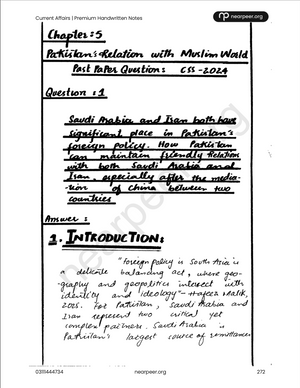 Current Affairs | Premium Handwritten Notes
nearpeer.org
Chapter: 5
Pakistan's Relation with Muslim World
Past Paper Question: CSS-2024
Question: 1
Saudi Arabia and Iran both have
significant place in Pakistan's
foreign policy. How Pakistan
can maintain friendly Relations
with both Saudi Arabia and
Iran, especially after the media-
-tion of China between two
countries
Answer:
1. INTRODUCTION:
"Foreign policy in South Asia is
a delicate balancing act, where geo-
graphy and geopolitics intersect with
identity and ideology" - Malik,
2025. For Pakistan, Saudi Arabia and
Iran represent two critical yet
complex partners. Saudi Arabia is
Pakistan's largest source of remittances
nearpeer.org
0311444734
nearpeer.org
272